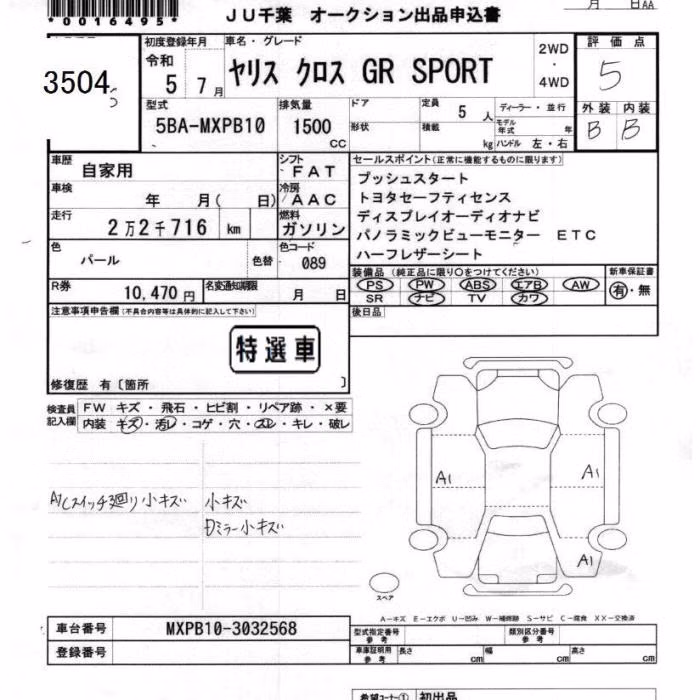 月 日AA
*0016495*
JU千葉 オークション出品申込書
3504
初度登録年月 車名・グレード 2WD・4WD 評価点
令和 5 7月 ヤリス クロス GR SPORT 5
型式 排気量 ドア 定員 5人 ディーラー・並行 外装 内装
5BA-MXPB10 1500 CC 形状 積載 kg モデル年式 年 ハンドル 左・右 B B
車歴 自家用 シフト FAT セールスポイント(正常に機能するものに限ります)
車検 年 月( 日) 冷房 AAC プッシュスタート
トヨタセーフティセンス
走行 2万2千716 km 燃料 ガソリン ディスプレイオーディオナビ
パノラミックビューモニター ETC
色 パール 色替 色コード 089 ハーフレザーシート
装備品(純正品に限り○をつけてください) 新車保証書
R券 10,470円 名変通知期限 月 日 PS PW ABS エアB AW 有・無
SR ナビ TV カワ
注意事項申告欄(不具合内容等は具体的に記入して下さい) 後日品
特選車
修復歴 有〔箇所 〕
検査員記入欄 FW キズ・飛石・ヒビ割・リペア跡・×要
内装 キズ・汚レ・コゲ・穴・スレ・キレ・破レ
A/Cスイッチ廻り小キズ 小キズ
Dミラー小キズ
A1
A1
A1
スペア
A-キズ E-エクボ U-凹み W-補修跡 S-サビ C-腐食 XX-交換済
車台番号 MXPB10-3032568 型式指定番号 参考 類別区分番号 参考
登録番号 車庫証明用 参考 長さ cm 幅 cm 高さ cm
希望コーナー① 初出品